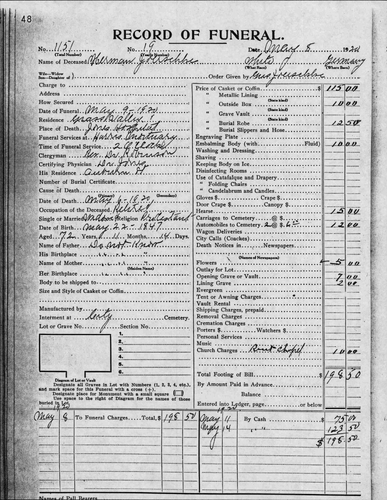 48
RECORD OF FUNERAL.
No. 1151 No. 19 Date, May 5 1920
(Total Number) (Yearly Number)
Name of Deceased Herman
White Germany
(What Race) (Where Born)
Wife—Widow
Son—Daughter of
Order Given by
Charge to
Address
How Secured
Date of Funeral May 9 - 1920
Residence Grass Valley
Place of Death Jones Hospital
Funeral Services at Mortuary
Time of Funeral Service 2 O'Clock
Clergyman Rev.
Certifying Physician Dr. Jones
His Residence Auburn St
Number of Burial Certificate
Cause of Death
Date of Death May 6 - 1920
Occupation of the Deceased Retired
Single or Married Religion Protestant
Date of Birth May 22 - 1847
Aged 72 Years 11 Months 14 Days
Name of Father Do not Know
His Birthplace
Name of Mother
(Maiden Name)
Her Birthplace
Body to be shipped to
Size and Style of Casket or Coffin
Manufactured by
Interment at Cemetery.
Lot or Grave No. Section No.
1.
2.
3.
4.
5.
6.
Diagram of Lot or Vault
Designate all Graves in Lot with Numbers (1, 2, 3, 4, etc.), and mark space for this Funeral with a cross (+).
Designate place for Monument with a small square
Use space to the right of Diagram for the names of those Buried in Lot.
Price of Casket or Coffin $ 115 00
" Metallic Lining
(State kind)
" Outside Box 10 00
(State kind)
" Grave Vault
(State kind)
" Burial Robe 12 50
" Burial Slippers and Hose
Engraving Plate
Embalming Body (with Fluid) 10 00
Washing and Dressing
Shaving
Keeping Body on Ice
Disinfecting Rooms
Use of Catafalque and Drapery
" Folding Chairs
" Candelabrum and Candles
Gloves $ Crape $
Door Crape $ Canopy $
Hearse 15 00
Carriages to Cemetery @ $
Automobiles to Cemetery 2 @ $ 6.00 12 00
Wagon Deliveries
City Calls (Coaches)
Death Notices in Newspapers
(Names of Newspapers)
Flowers 5 00
Outlay for Lot
Opening Grave or Vault 7 00
Lining Grave 2 00
Evergreen
Tent or Awning Charges
Vault Rental
Shipping Charges, prepaid
Removal Charges
Cremation Charges
Porters $ Watchers $
Personal Services
Music
Church Charges Rent Chapel 10 00
Total Footing of Bill $ 198 50
By Amount Paid in Advance
Balance
Entered into Ledger, page or below.
1920
May 8 To Funeral Charges Total, $ 198 50
1920
May 11 By Cash $ 75 00
May 14 " " 123 50
$ 198 50
Names of Pall Bearers